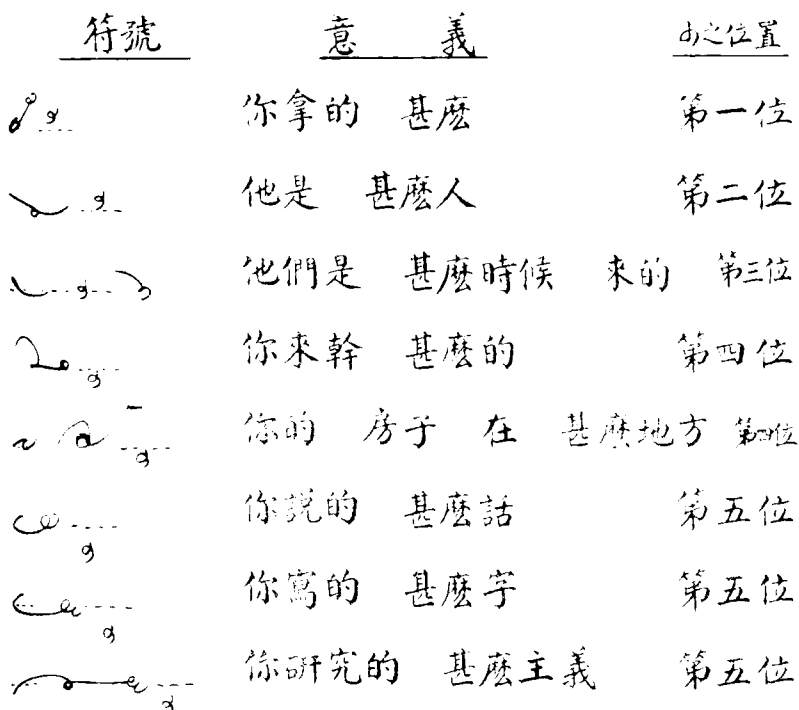 符號 意義 之位置
你拿的 甚麽 第一位
他是 甚麽人 第二位
他們是 甚麽時候 來的 第三位
你來幹 甚麽的 第四位
你的 房子 在 甚麽地方 第四位
你説的 甚麽話 第五位
你寫的 甚麽字 第五位
你研究的 甚麽主義 第五位